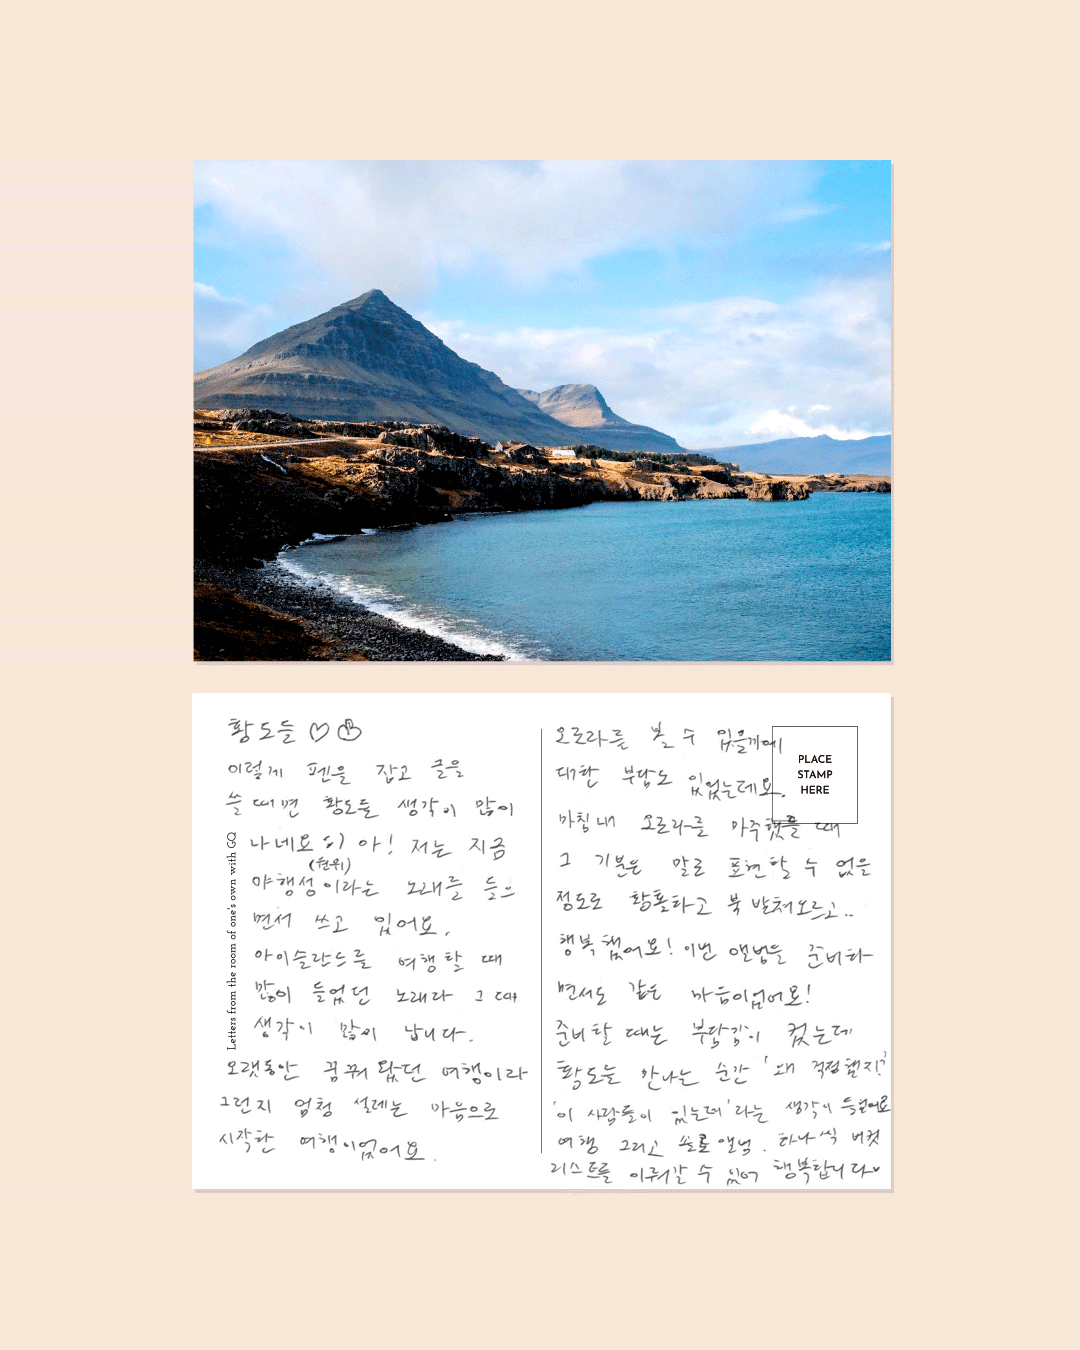 황도들
이렇게 펜을 잡고 글을
쓸 때면 황도들 생각이 많이
나네요 :) 아! 저는 지금
(원위)
야행성이라는 노래를 들으
면서 쓰고 있어요.
아이슬란드를 여행할 때
많이 들었던 노래라 그때
생각이 많이 납니다.
오랫동안 꿈꿔 왔던 여행이라
그런지 엄청 설레는 마음으로
시작한 여행이었어요.
Letters from the room of one's own with GQ
오로라를 볼 수 있을까에
대한 부담도 있었는데요.
마침내 오로라를 마주했을 때
그 기분은 말로 표현할 수 없을
정도로 황홀하고 북받쳐오르고..
행복했어요! 이번 앨범을 준비하
면서도 같은 마음이었어요!
준비할 때는 부담감이 컸는데
황도들 만나는 순간 '왜 걱정했지?'
'이 사람들이 있는데'라는 생각이 들었어요
여행 그리고 솔로앨범. 하나씩 버킷
리스트를 이뤄갈 수 있어 행복합니다
PLACE
STAMP
HERE